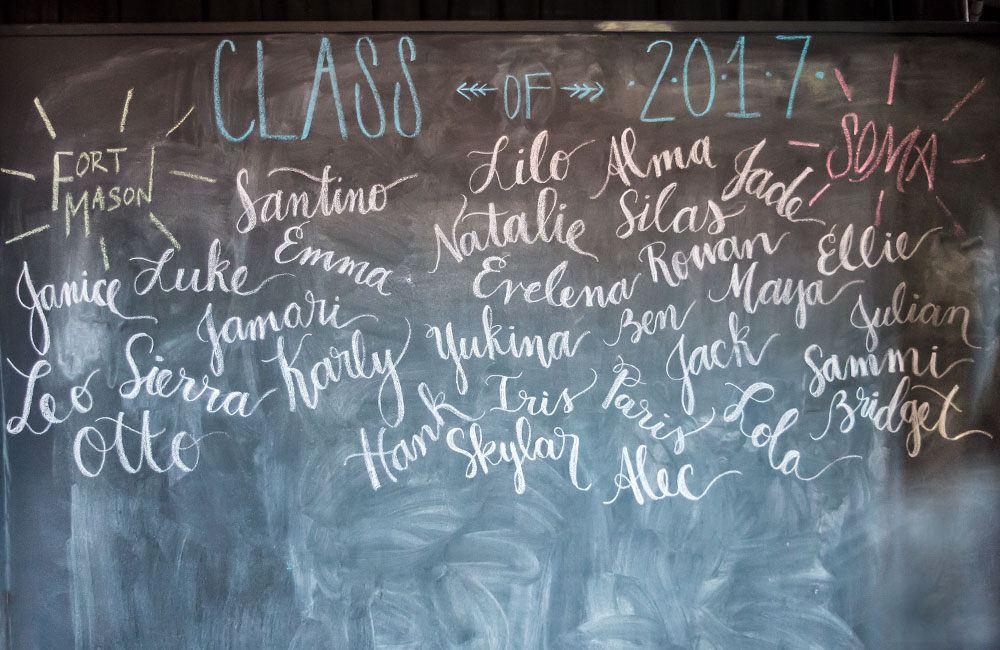 CLASS OF 2017
FORT
MASON
SOMA
Santino
Emma
Janice
Luke
Jamari
Leo
Sierra
Karly
Otto
Lilo
Alma
Jade
Natalie
Silas
Rowan
Ellie
Evelena
Maya
Julian
Yukina
Ben
Jack
Sammi
Hank
Iris
Paris
Lola
Bridget
Skylar
Alec